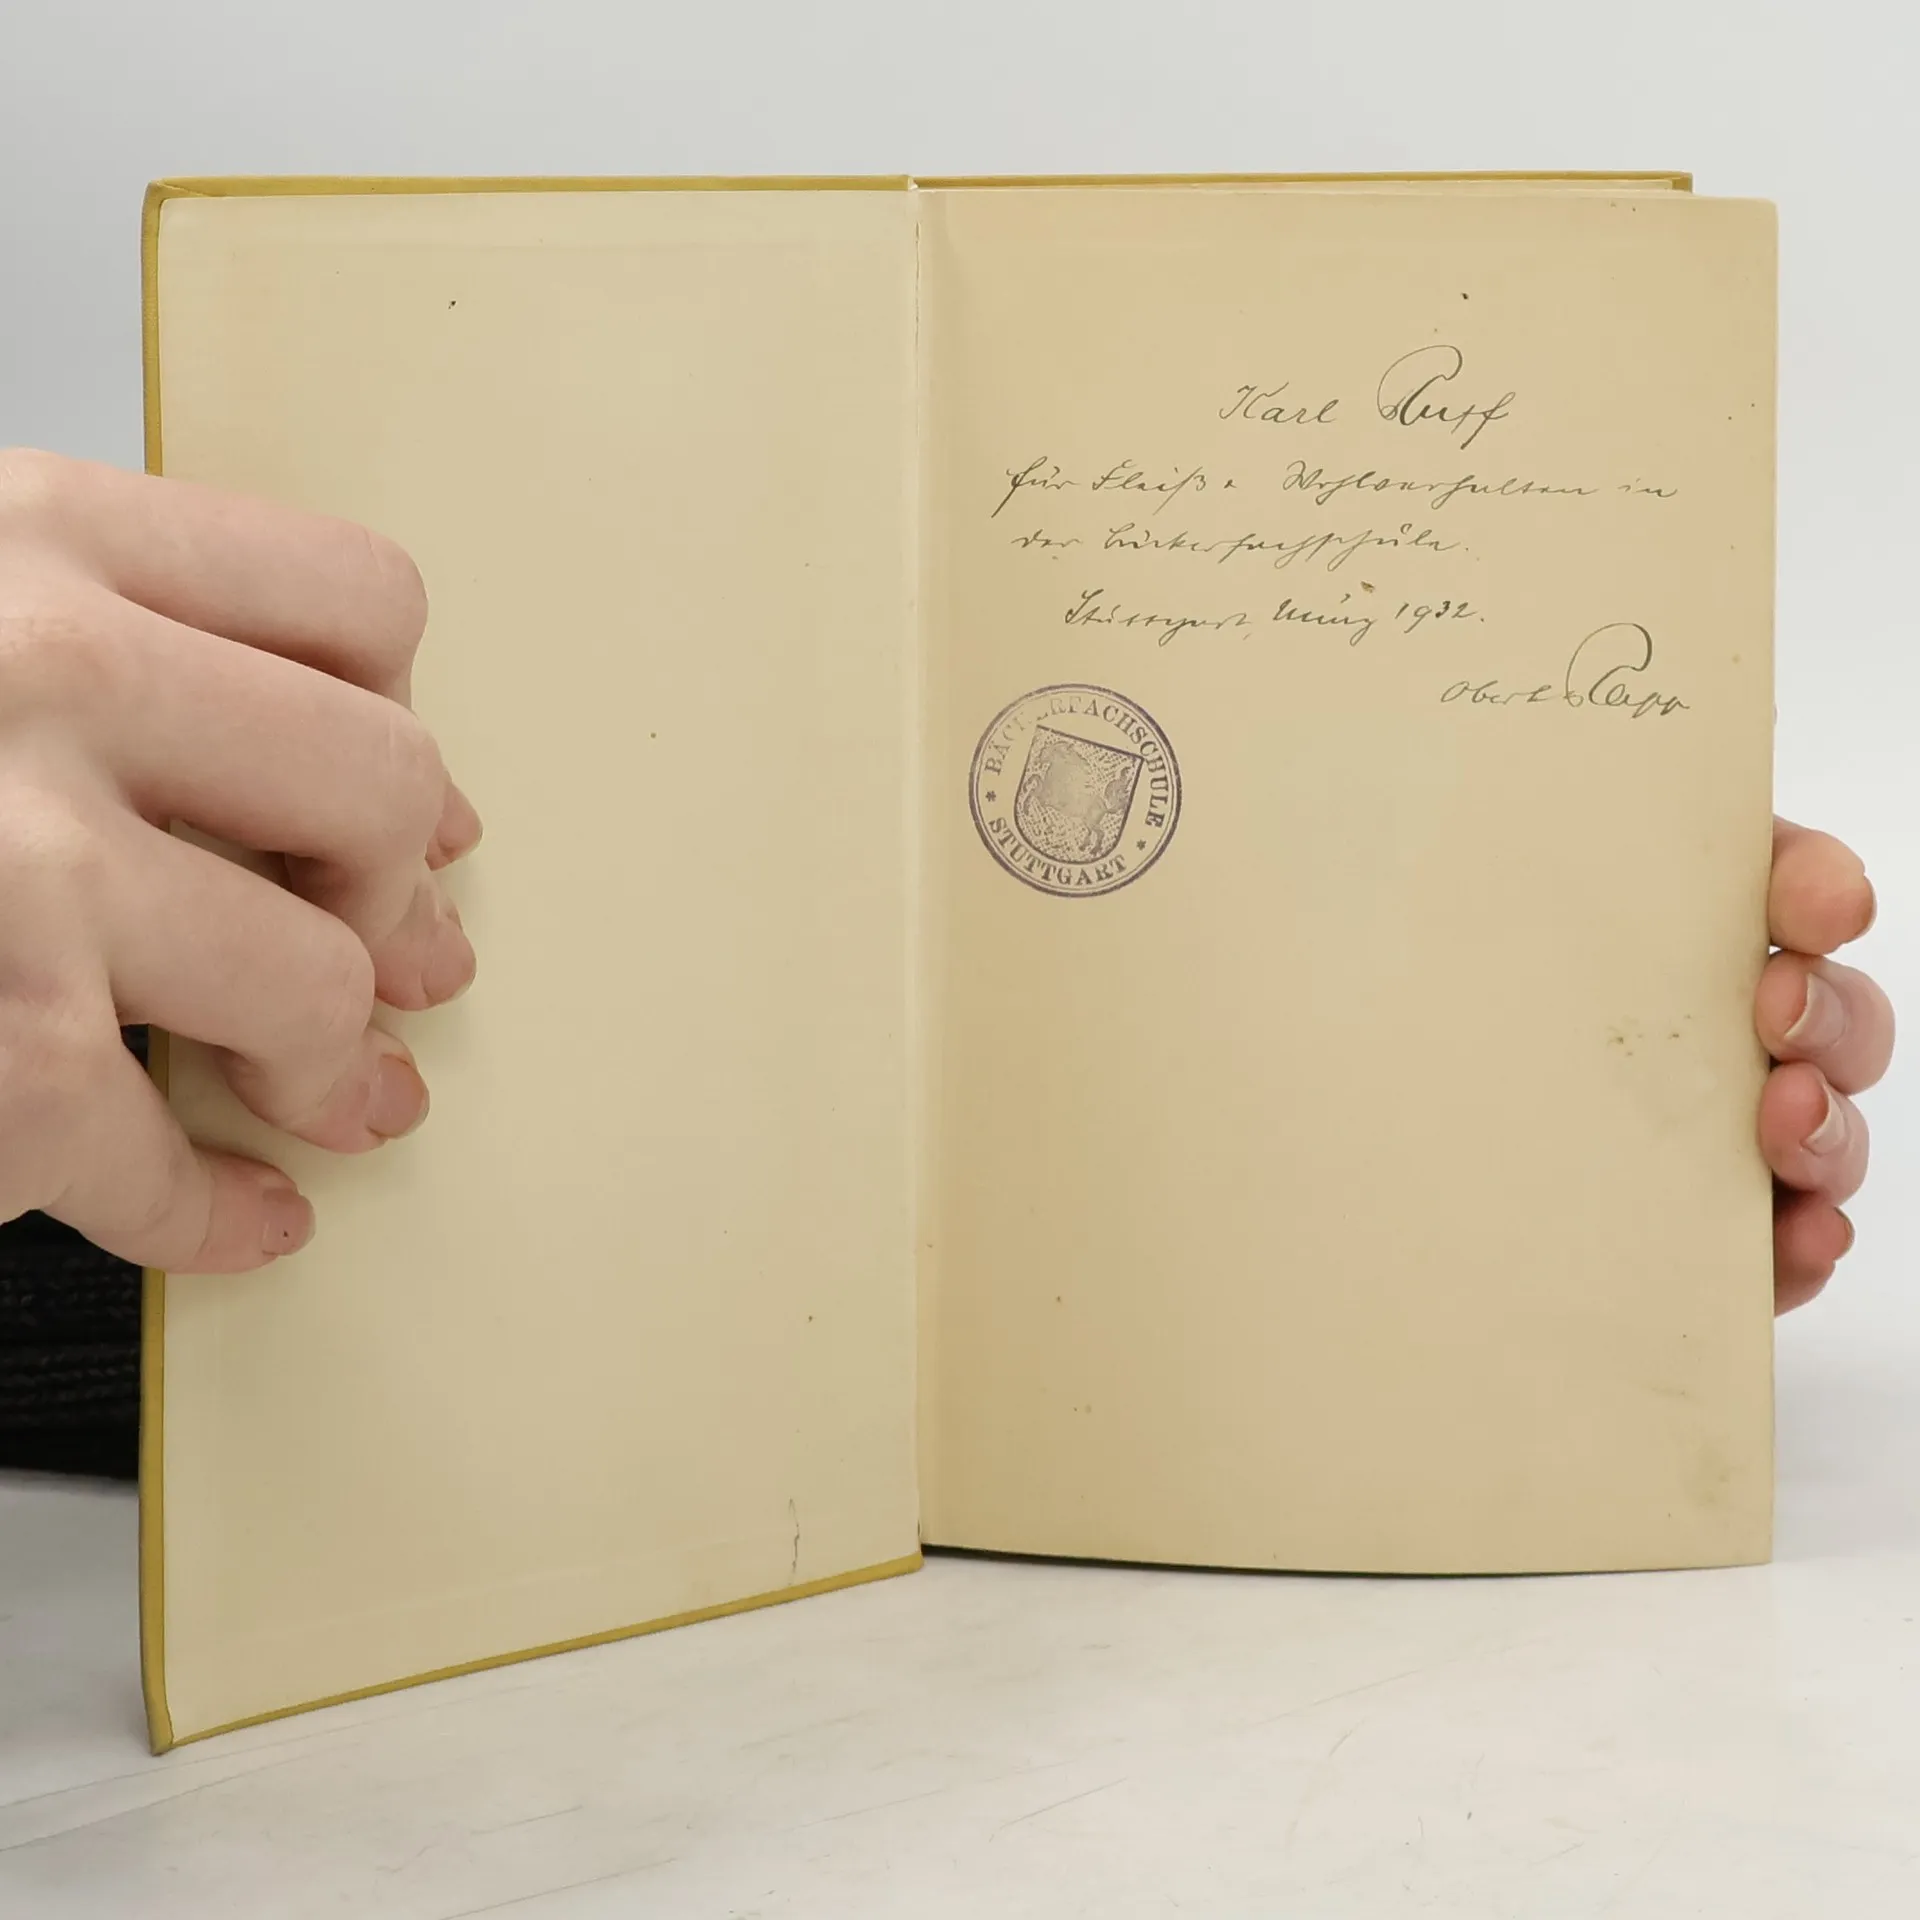 Karl Ruff
für Fleiß & Wohlverhalten in
der Bäckerfachschule.
Stuttgart, März 1932.
Rapp
BÄCKERFACHSCHULE
* STUTTGART *